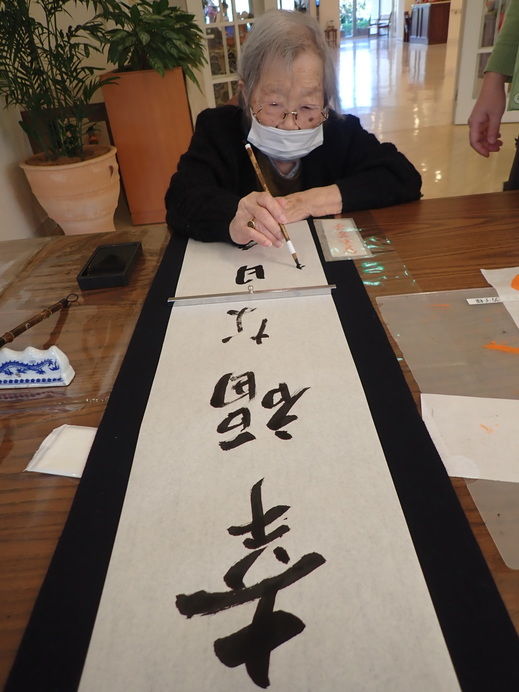 幸福な日